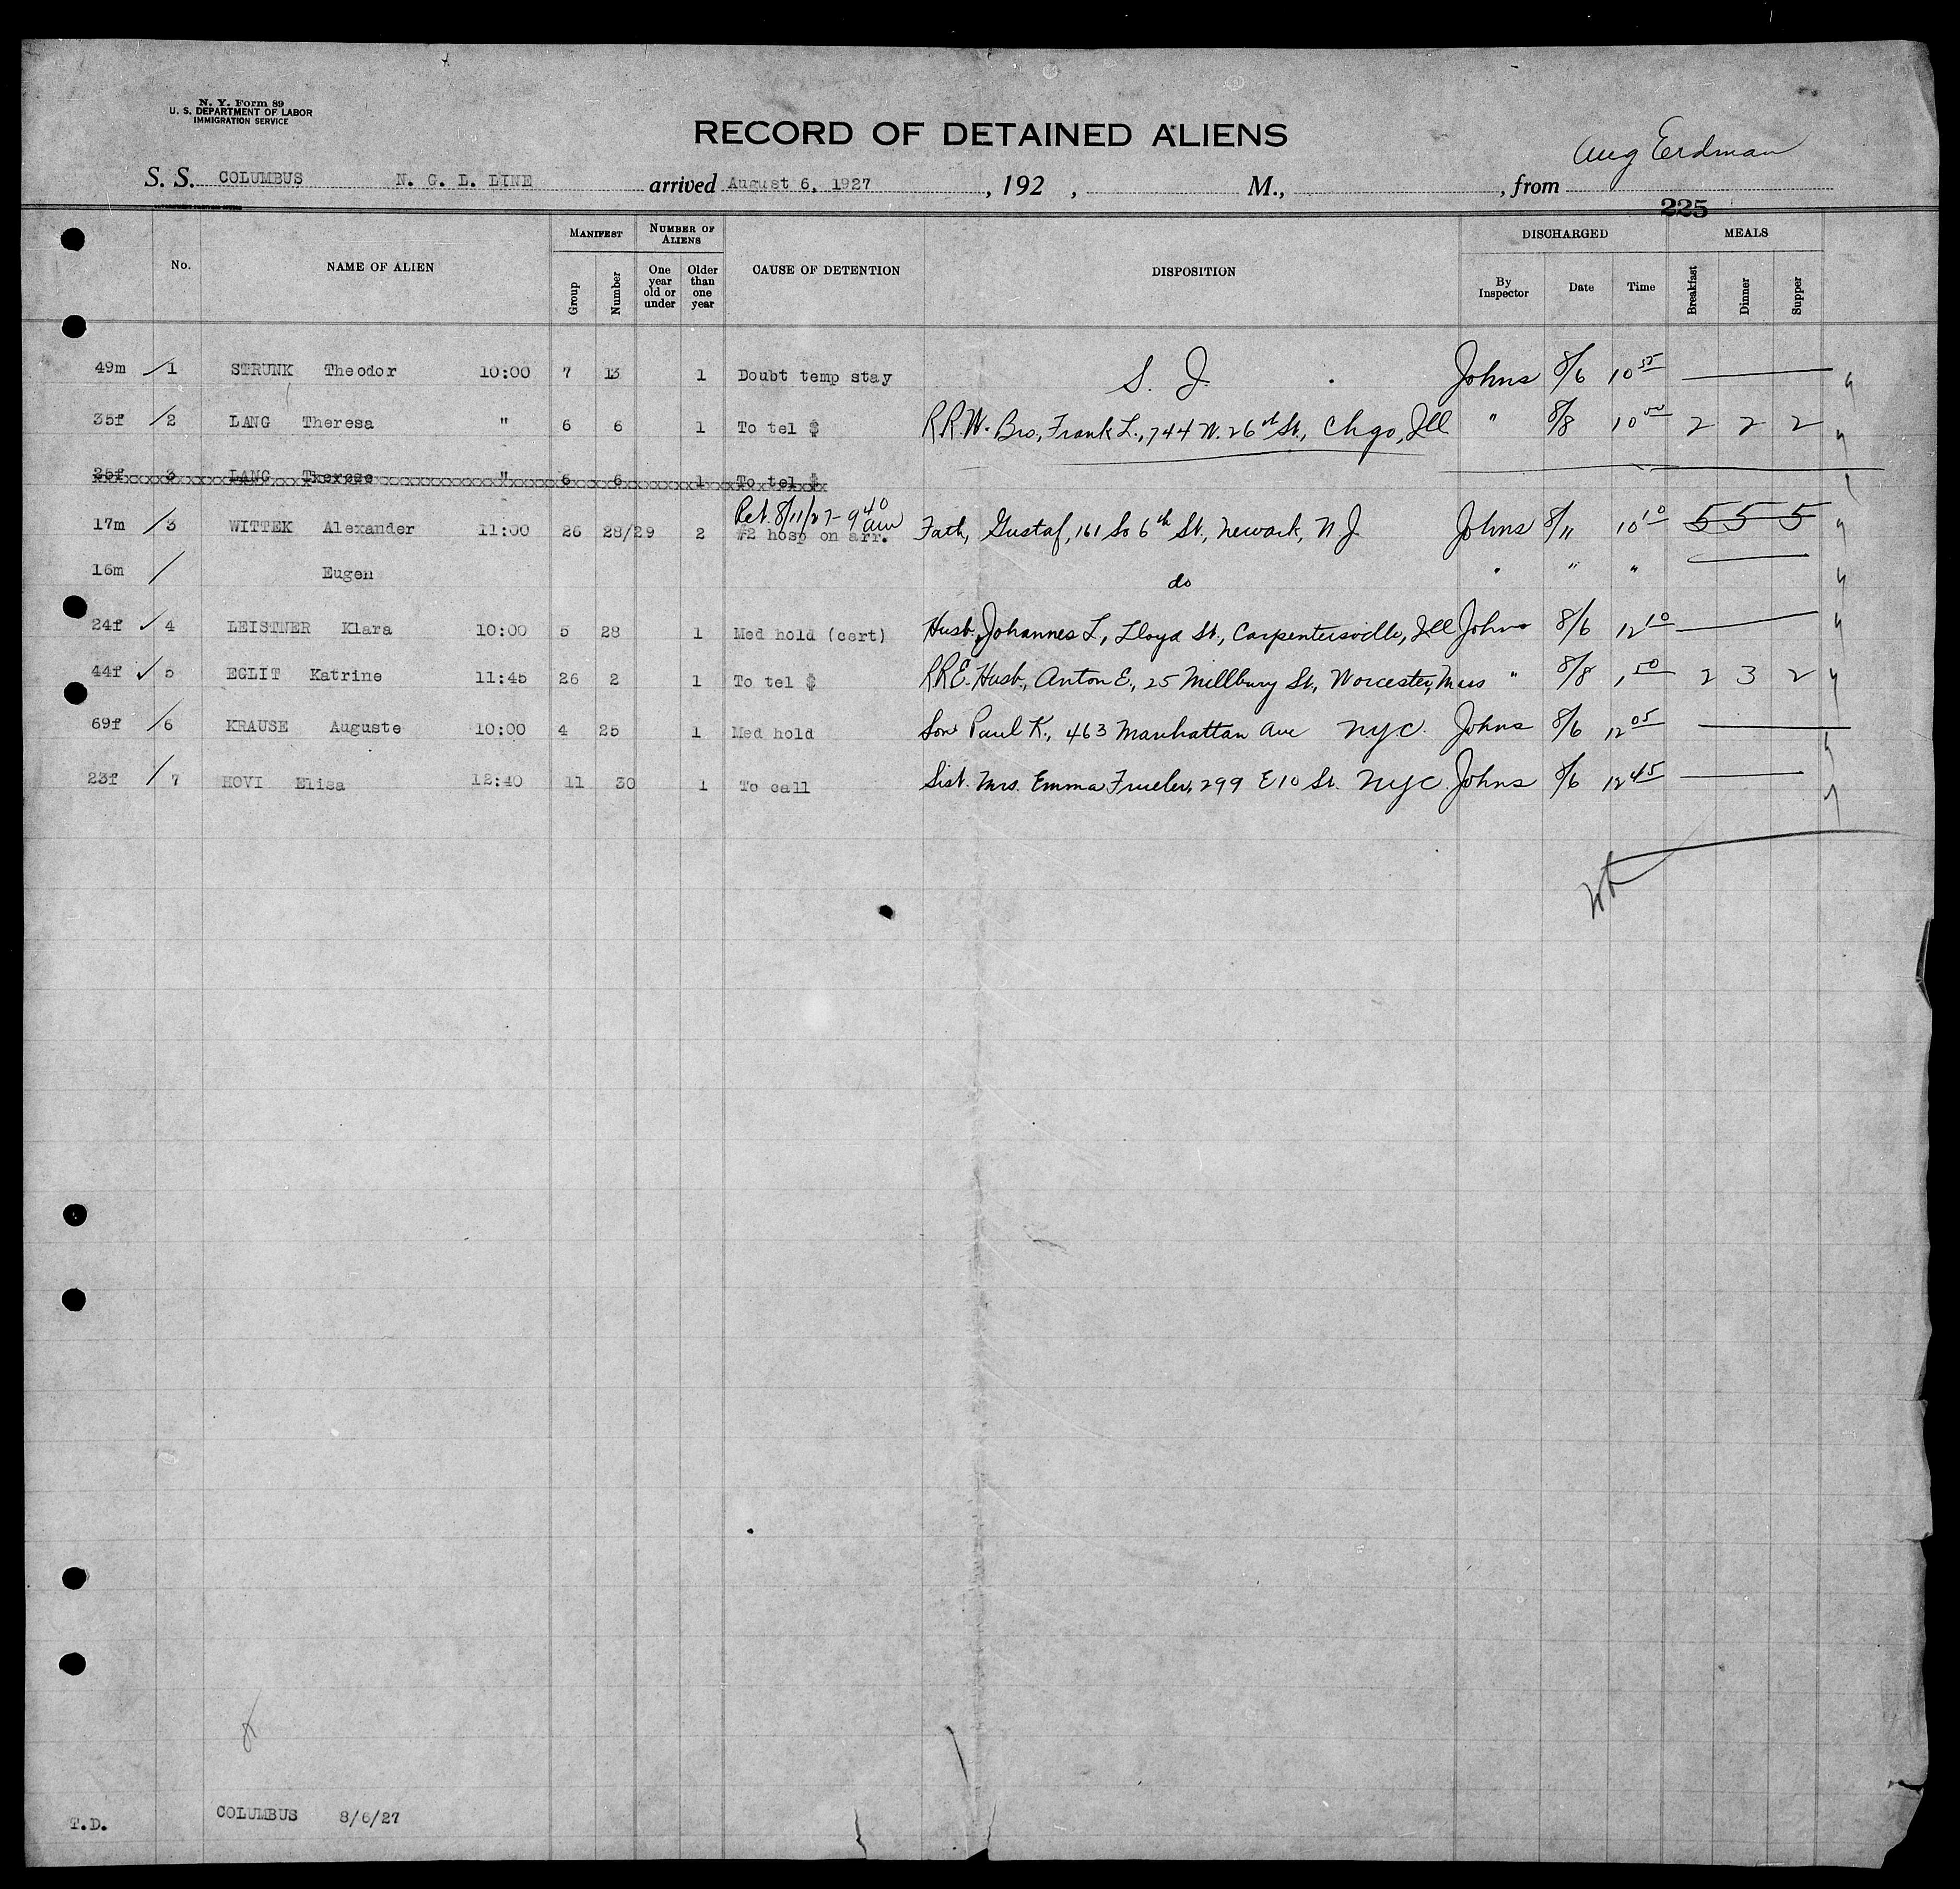 N. Y. Form 89
U. S. DEPARTMENT OF LABOR
IMMIGRATION SERVICE
RECORD OF DETAINED ALIENS
Aug Erdman
S. S. COLUMBUS N. G. L. LINE arrived August 6, 1927, 192 , M., , from
225
No. NAME OF ALIEN MANIFEST Group Number NUMBER OF ALIENS One year old or under Older than one year CAUSE OF DETENTION DISPOSITION DISCHARGED By Inspector Date Time MEALS Breakfast Dinner Supper
49m 1 STRUNK Theodor 10:00 7 13 1 Doubt temp stay S. J. Johns 8/6 10
35f 2 LANG Theresa " 6 6 1 To tel $ R.R.W. Bro, Frank L., 744 W. 26th St., Chgo, Ill " 8/8 10 00 2 2 2
35f 3 LANG Therese " 6 6 1 To tel $
Ret. 8/11/27- 9 40 am
17m 3 WITTEK Alexander 11:00 26 28/29 2 #2 hosp on arr. Fath, Gustaf, 161 So 6th St., Newark, N J Johns 8/11 10 10 5 5 5
16m Eugen do " " "
24f 4 LEISTNER Klara 10:00 5 28 1 Med hold (cert) Husb, Johannes L, Lloyd St, Carpentersville, Ill Johns 8/6 12 10
44f 5 EGLIT Katrine 11:45 26 2 1 To tel $ RRE. Husb., Anton E., 25 Millbury St., Worcester, Mass " 8/8 1 50 2 3 2
69f 6 KRAUSE Auguste 10:00 4 25 1 Med hold Son Paul K., 463 Manhattan Ave NYC. Johns 8/6 12 05
23f 7 HOVI Elisa 12:40 11 30 1 To call Sist. Mrs. Emma 299 E 10 St. NYC. Johns 8/6 12 45
COLUMBUS 8/6/27
T.D.